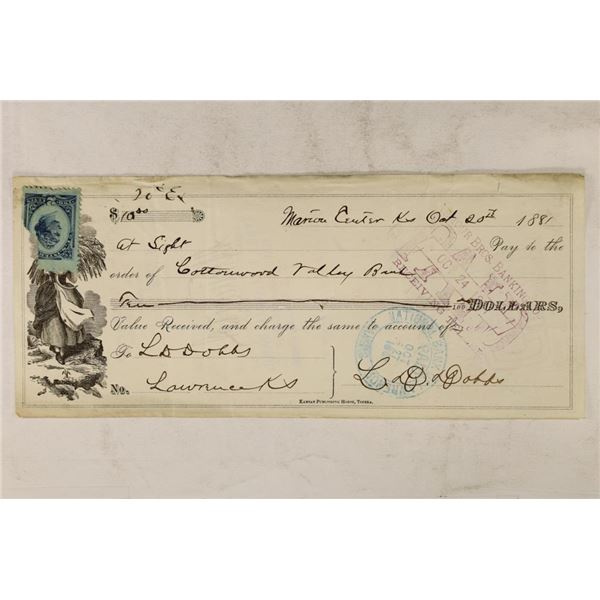 $10.00
Marion Center Ks Oct 20th 1881
At Sight Pay to the
order of Cottonwood Valley Bank
Ten 100 DOLLARS,
Value Received, and charge the same to account of
To L D Dobbs
No. Lawrence Ks L. D. Dobbs
KANSAS PUBLISHING HOUSE, TOPEKA.
BANKING
RECEIVING
OCT 24
NATIONAL BANK